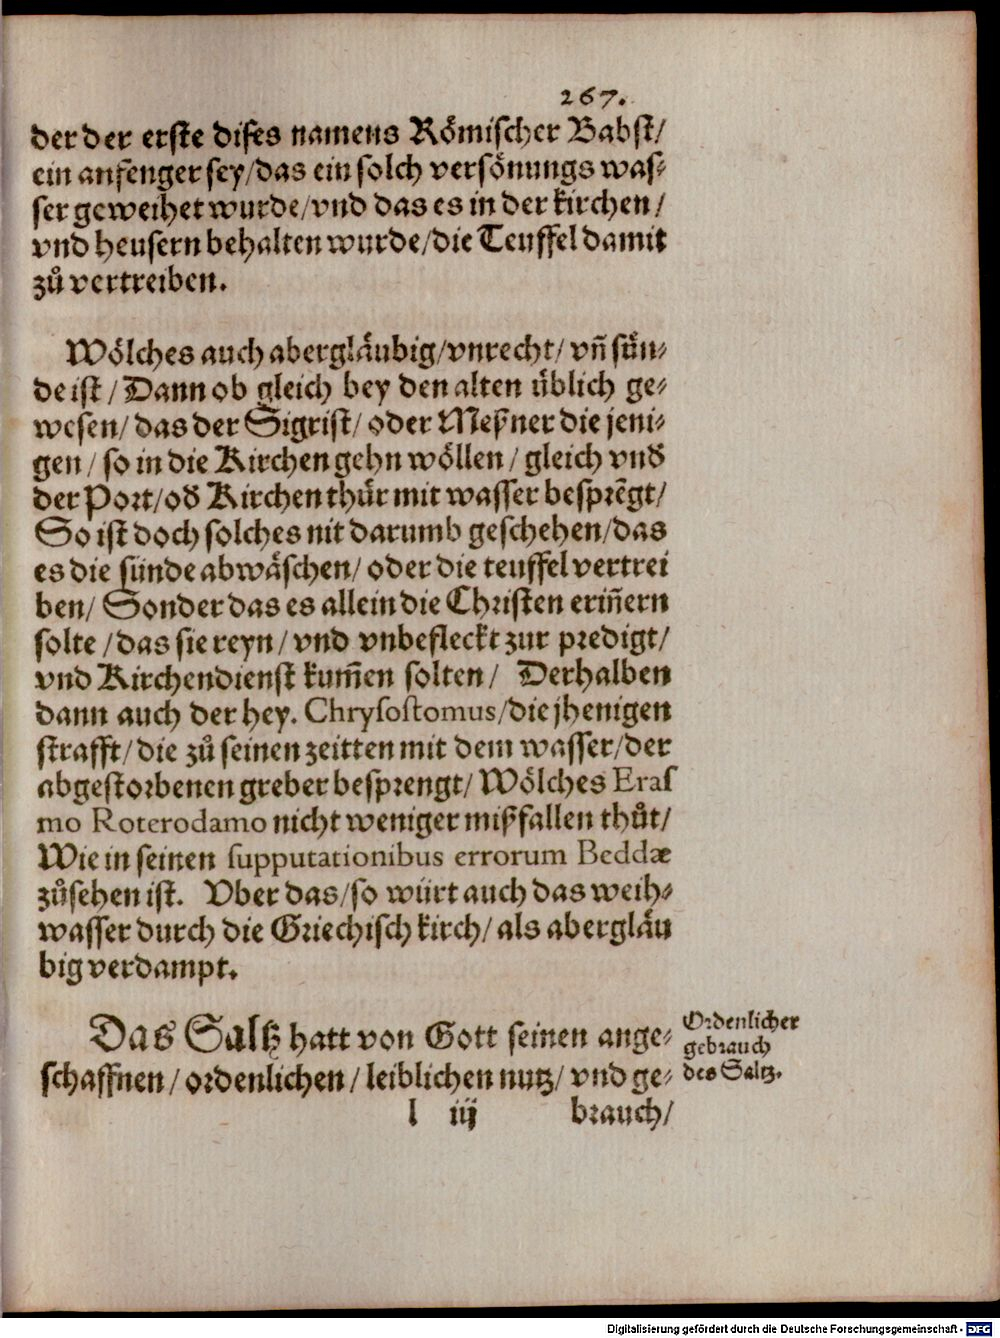 267.
der der erste dises namens Roͤmischer Babst/
ein anfenger sey/das ein solch versoͤnungs was⸗
ser geweihet wurde/vnd das es in der kirchen/
vnd heusern behalten wurde/die Teuffel damit
zuͦ vertreiben.
Woͤlches auch aberglaͤubig/vnrecht/ vñ süͤn⸗
de ist/ Dann ob gleich bey den alten uͤblich ge⸗
wesen/ das der Sigrist/ oder Meßner die jeni⸗
gen/ so in die Kirchen gehn woͤllen/ gleich vnd̕
der Port/od̕ Kirchen thuͤr mit wasser besprẽgt/
So ist doch solches nit darumb geschehen/das
es die sünde abwaͤschen/ oder die teuffel vertrei
ben/ Sonder das es allein die Christen eriñern
solte/das sie reyn/ vnd vnbefleckt zur predigt/
vnd Kirchendienst kum̃en solten/ Derhalben
dann auch der hey. Chrysostomus/die jhenigen
strafft/die zuͦ seinen zeitten mit dem wasser/der
abgestorbenen greber besprengt/ Woͤlches Eras
mo Roterodamo nicht weniger mißfallen thuͦt/
Wie in seinen supputationibus errorum Beddæ
zuͦsehen ist. Vber das/so würt auch das weih⸗
wasser durch die Griechisch kirch/ als aberglaͤu
big verdampt.
Das Saltz hatt von Gott seinen ange⸗
schaffnen/ ordenlichen/ leiblichen nutz/ vnd ge⸗
Ordenlicher
gebrauch
des Saltz.
l iij brauch/
Digitalisierung gefördert durch die Deutsche Forschungsgemeinschaft - DFG